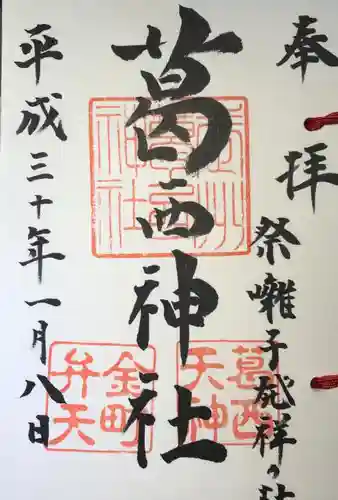 奉拝
祭囃子発祥の
葛西神社
平成三十年一月八日
葛西
天神
金町
弁天